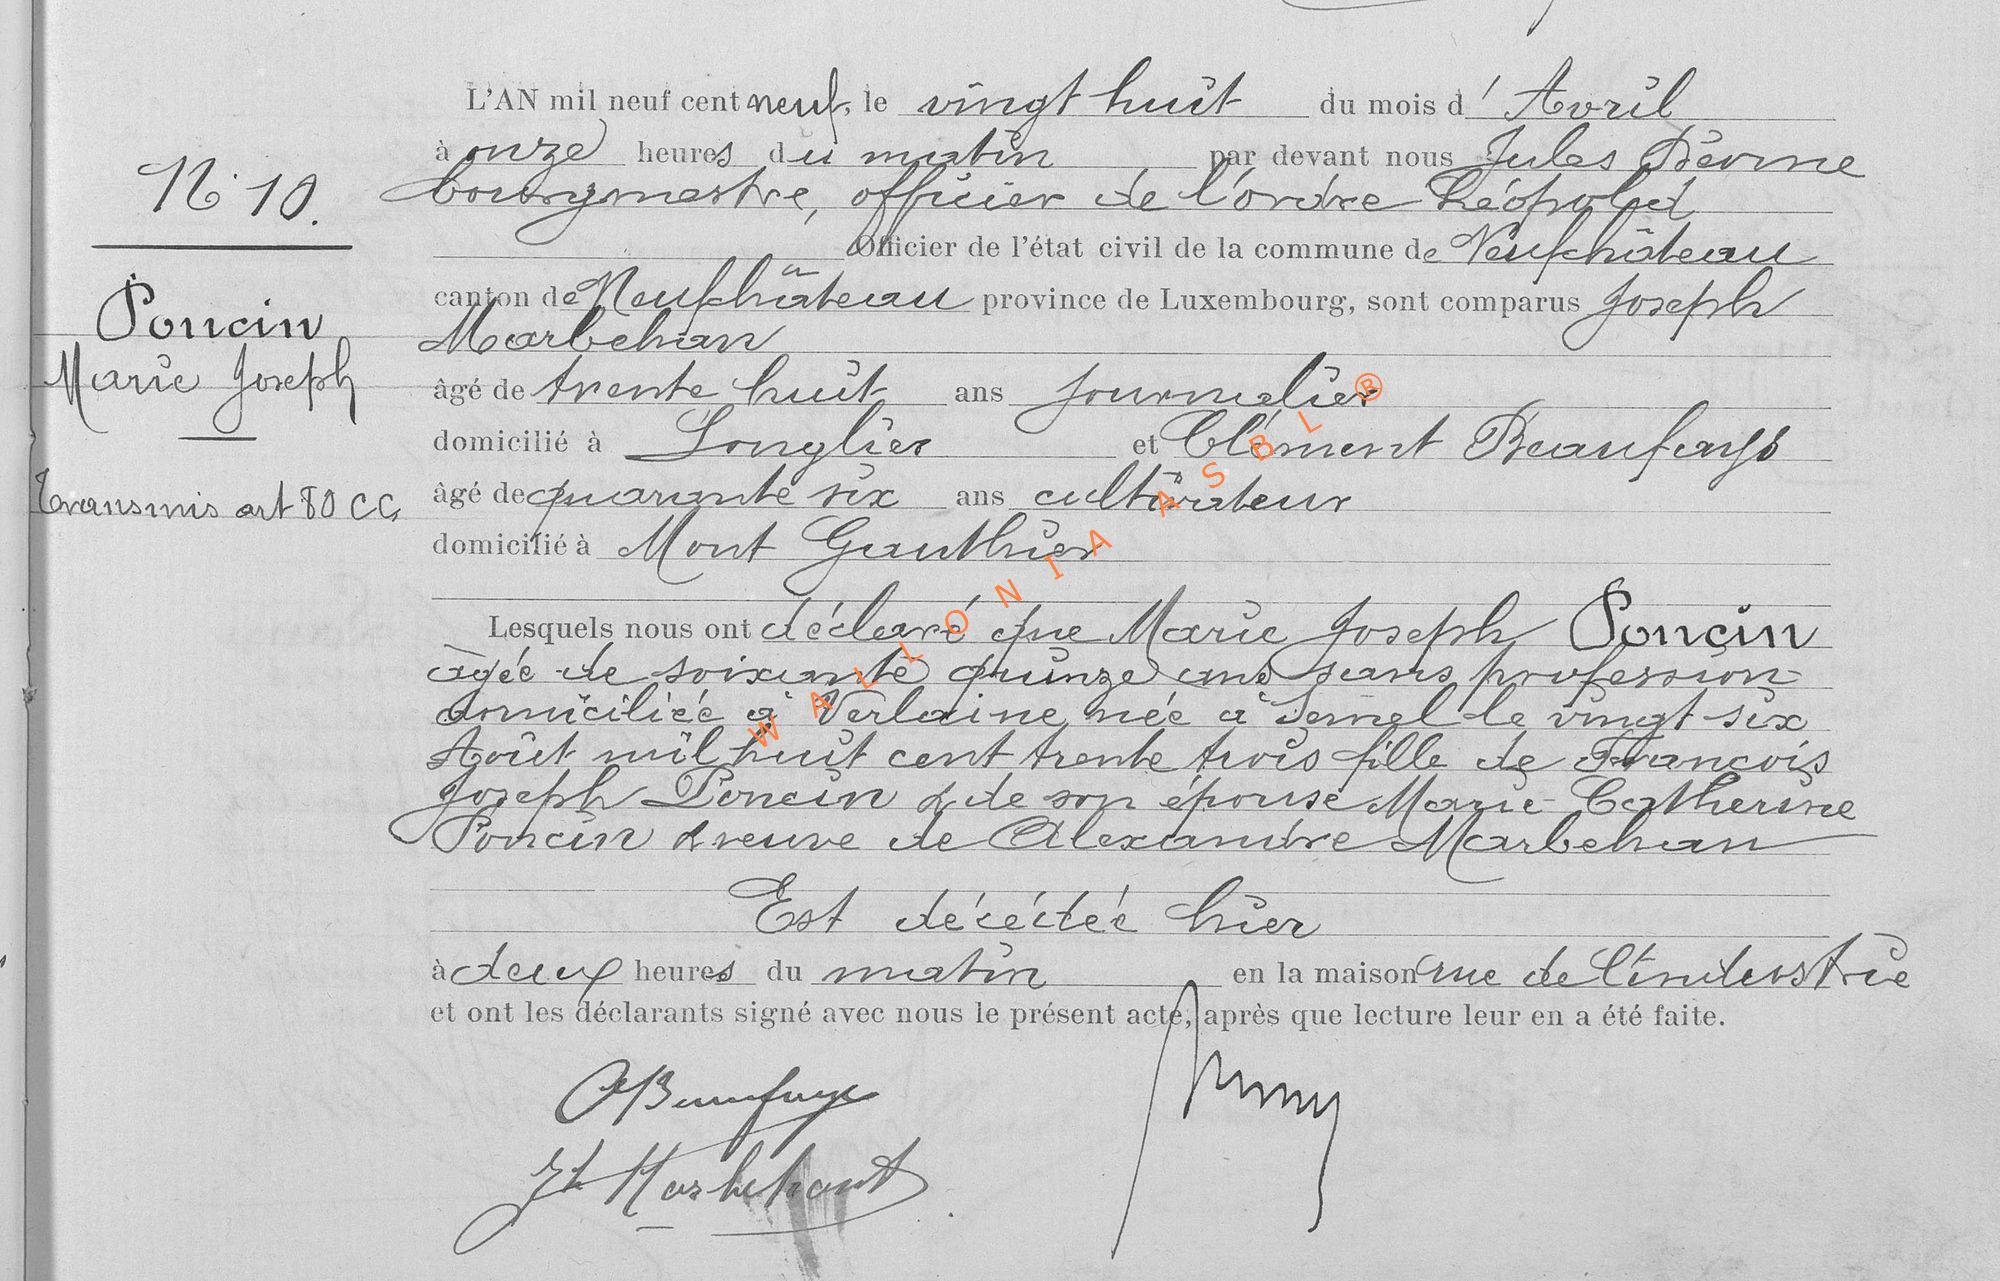 L'AN mil neuf cent neuf, le vingt huit du mois d'Avril
à onze heures du matin par devant nous Jules
bourgmestre, officier de l'ordre Léopold
Officier de l'état civil de la commune de Neufchâteau
canton de Neufchâteau province de Luxembourg, sont comparus Joseph
Marbehan
âgé de trente huit ans journalier
domicilié à Longlier et Clément Beaufays
âgé de quarante six ans cultivateur
domicilié à Mont Gauthier
Lesquels nous ont déclaré que Marie Joseph Poncin
âgée de soixante quinze ans sans profession
domiciliée à Verlaine née à Semel le vingt six
Août mil huit cent trente trois fille de François
Joseph Poncin & de son épouse Marie Catherine
Poncin & veuve de Alexandre Marbehan
Est décédée hier
à deux heures du matin en la maison rue de l'industrie
et ont les déclarants signé avec nous le présent acte, après que lecture leur en a été faite.
N° 10.
Poncin
Marie Joseph
Transmis art 80 CC
Beaufays
Jh Marbehant
WALLONIA ASBL ®